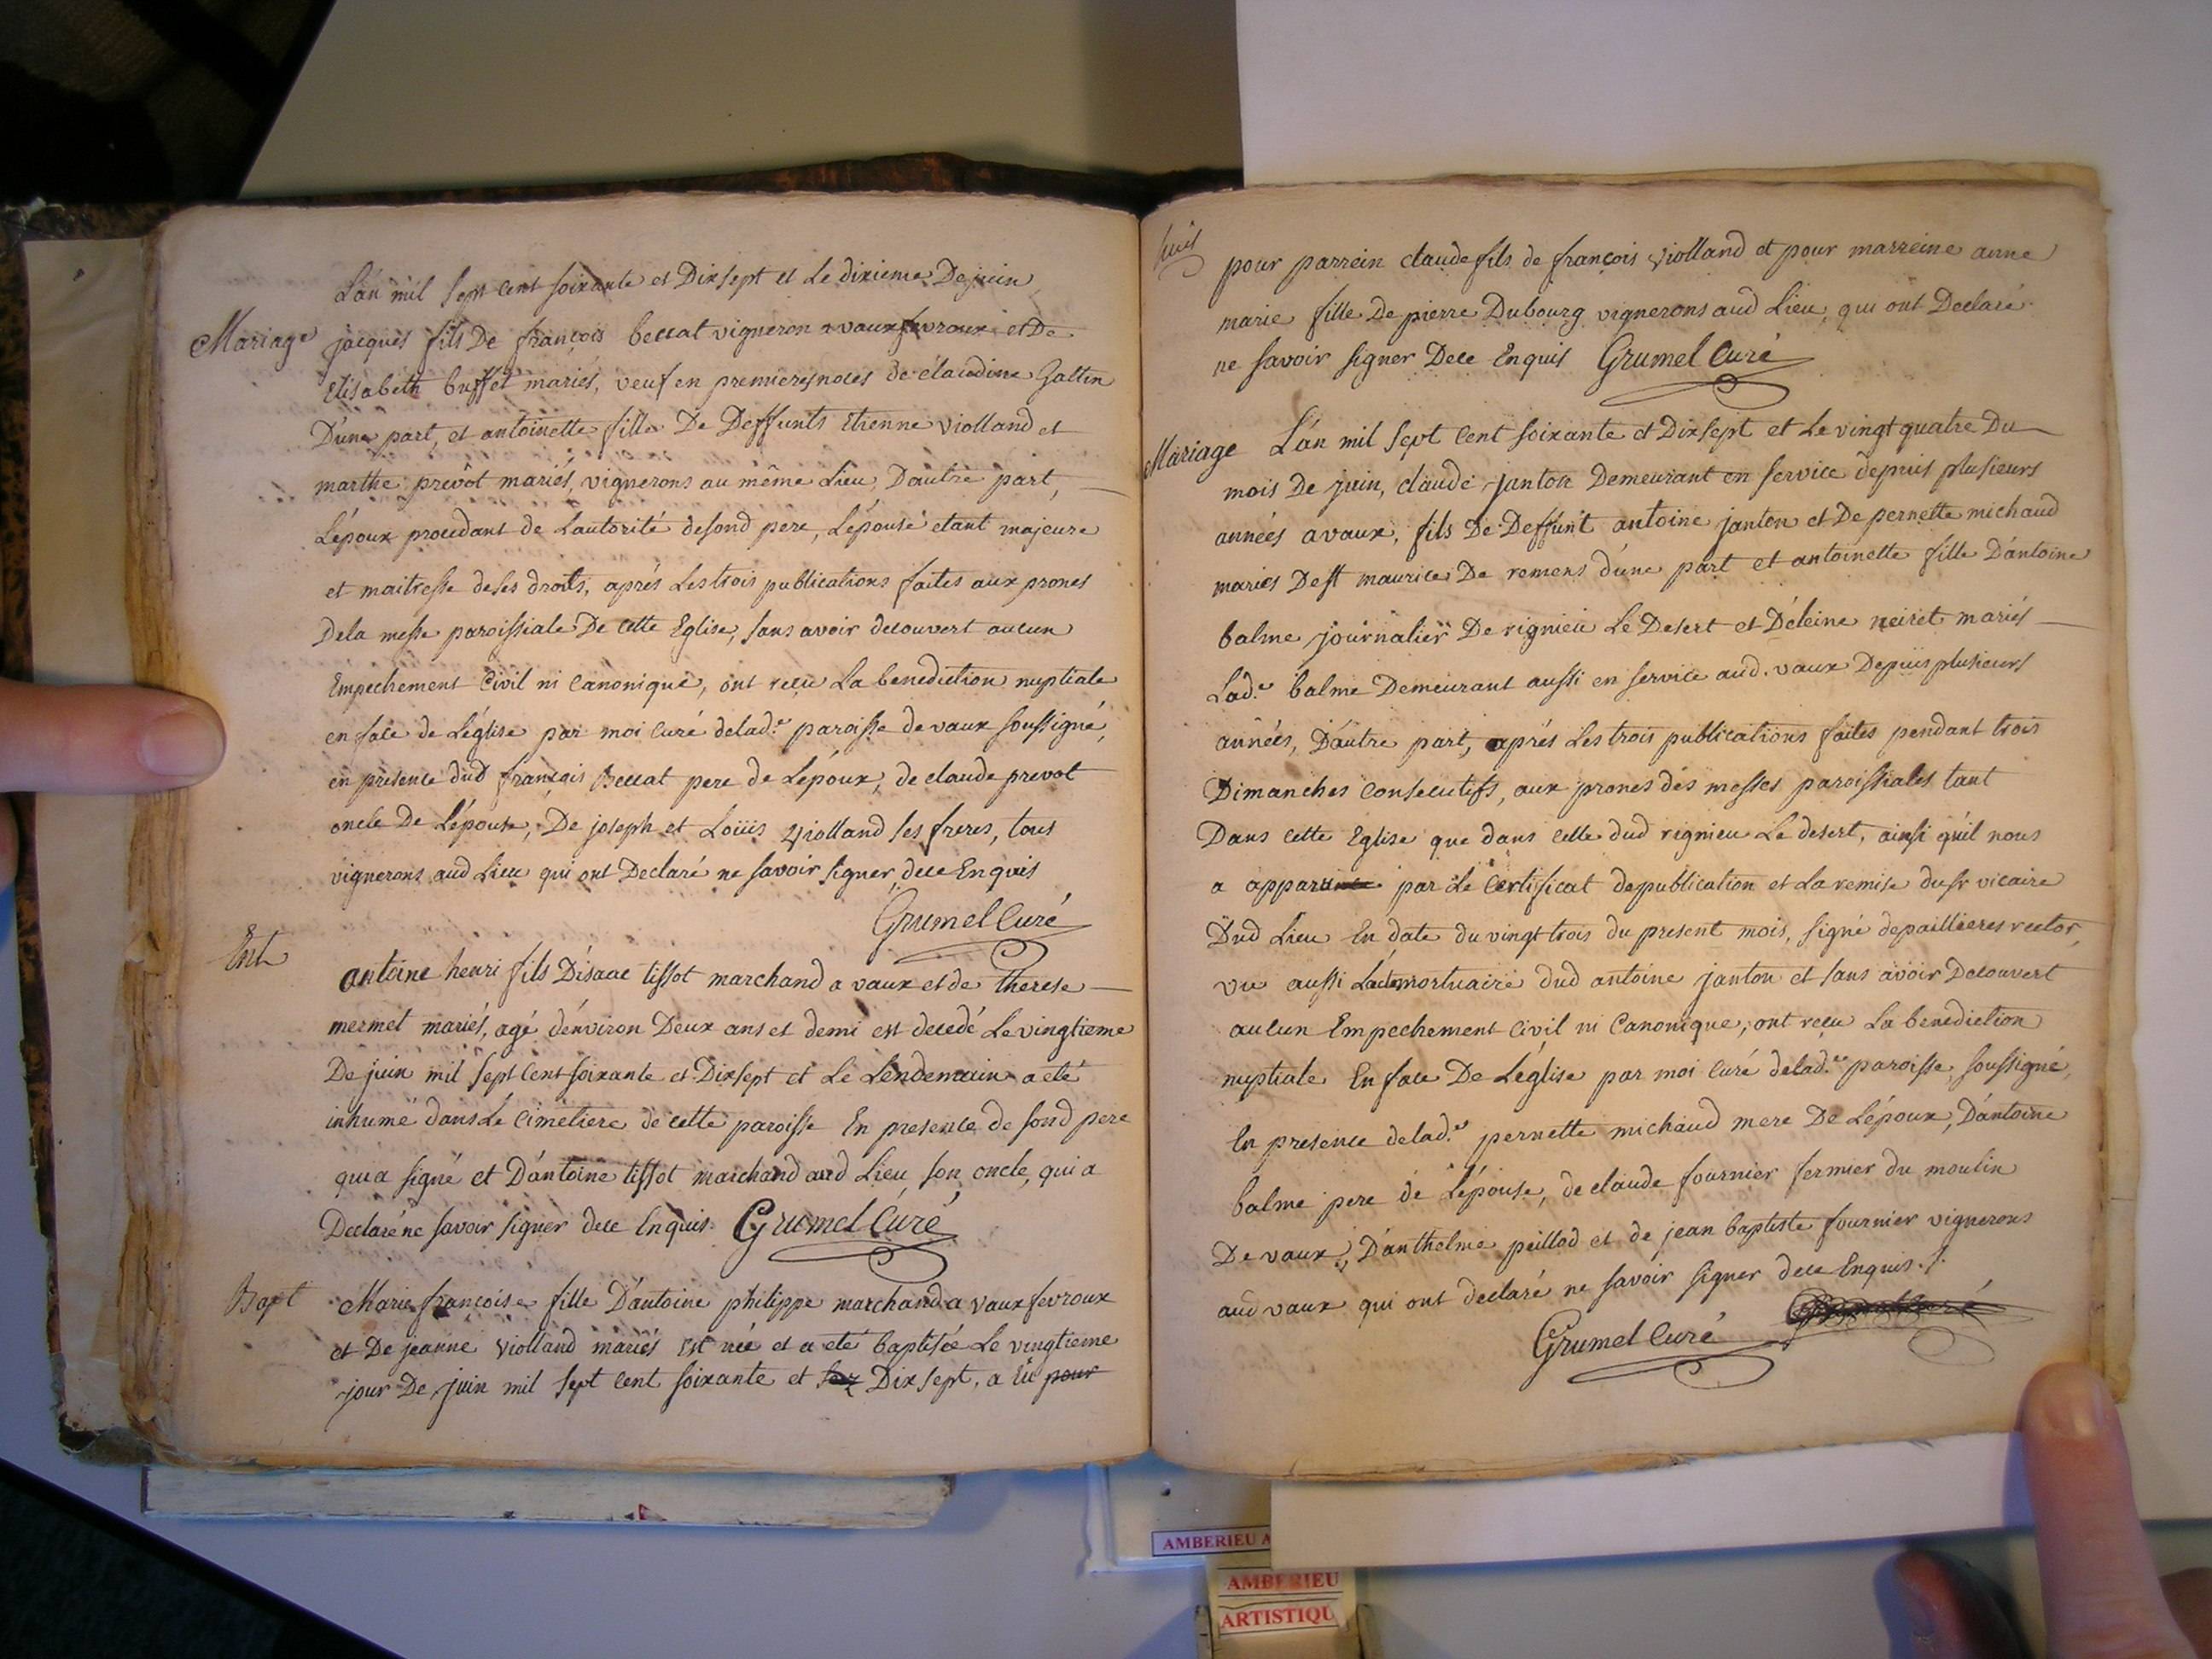 L'an mil Sept Cent soixante et Dixsept et Le dixieme De juin
Mariage jacques fils De françois beccat vigneron a vaux fevroux et De
Elisabeth buffet mariés, veuf en premieres noces de claudine Galtin
D'une part, et antoinette fille De Deffunts Etienne violland et
marthe prevôt mariés, vignerons au même Lieu, D'autre part,
L'époux procedant de L'autorité desond pere, L'épouse étant majeure
et maitresse de ses droits, aprés Les trois publications faites aux prones
Dela messe paroissiale De cette Eglise, sans avoir decouvert aucun
Empechement Civil ni Canonique, ont reçu La benediction nuptiale
en face de L'église par moi Curé delad.e paroisse de vaux soussigné,
en presence dud françois Beccat pere de L'époux, de claude prevot
oncle De L'épouse, De joseph et Loüis violland ses freres, tous
vignerons aud Lieu qui ont Declaré ne savoir signer dece Enquis
Grumel Curé
Ent
antoine henri fils D'isaac tissot marchand a vaux et de therese
mermet mariés, agé d'environ Deux ans et demi est decedé Le vingtieme
De juin mil sept Cent soixante et Dixsept et Le Lendemain a eté
inhumé dans Le Cimetiere de cette paroisse En presence de sond pere
qui a signé et D'antoine tissot marchand aud Lieu, son oncle, qui a
Declaré ne savoir signer dece Enquis. Grumel Curé
Bapt Marie françoise fille D'antoine philippe marchand a vaux fevroux
et De jeanne violland mariés est née et a eté baptisée Le vingtieme
jour De juin mil sept Cent soixante et Dixsept, a Eü pour
huit
pour parrein claude fils de françois violland et pour marreine anne
marie fille De pierre Dubourg vignerons aud Lieu, qui ont Declaré
ne savoir signer Dece Enquis Grumel Curé
Mariage L'an mil Sept Cent soixante et Dixsept et Le vingt quatre Du
mois De juin, claude janton Demeurant en service depuis plusieurs
années a vaux, fils De Deffunt antoine janton et De pernette michaud
mariés De st maurice De remens d'une part et antoinette fille D'antoine
balme journalier De rignieu Le Desert et D'éleine neiret mariés
Lad.e balme Demeurant aussi en service aud. vaux Depuis plusieurs
années, D'autre part, aprés Les trois publications faites pendant trois
Dimanches Consecutifs, aux prones des messes paroissiales tant
Dans cette Eglise que dans celle dud rignieu Le desert, ainsi qu'il nous
a apparu par Le Certificat de publication et La remise du sr vicaire
Dud Lieu En date du vingt trois du present mois, signé depaillieres rector,
vu aussi L'acte mortuaire dud antoine janton et sans avoir Decouvert
aucun Empechement Civil ni Canonique, ont reçu La benediction
nuptiale En face De L'église par moi Curé delad.e paroisse soussigné,
En presence delad.e pernette michaud mere De L'époux, D'antoine
balme pere de L'épouse, de claude fournier fermier du moulin
De vaux, D'anthelme peillod et de jean baptiste fournier vignerons
aud vaux qui ont declaré ne savoir signer dece Enquis ./.
Grumel Curé
AMBERIEU A
AMBERIEU
ARTISTIQU